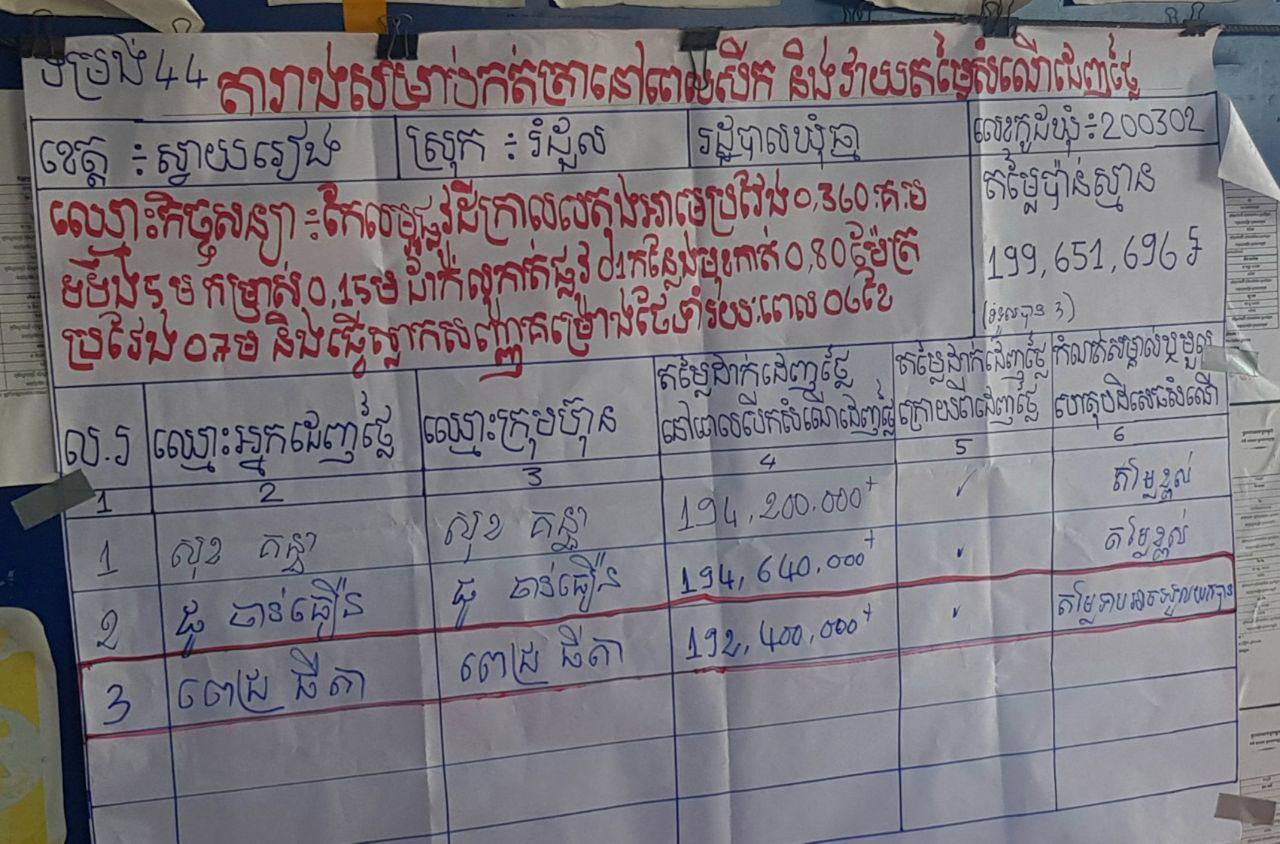 ទម្រង់ 44
តារាងសម្រាប់កត់ត្រានៅពេលបើក និងវាយតម្លៃសំណើដេញថ្លៃ
ខេត្ត ÷ ស្វាយរៀង
ស្រុក ÷ រំដួល
រដ្ឋបាលឃុំធ្មា
លេខកូដឃុំ÷200302
ឈ្មោះកិច្ចសន្យា ÷ កែលម្អផ្លូវដីក្រាលបេតុងអាមេប្រវែង 0,360 គ.ម
ទទឹង 5 ម កម្រាស់ 0,15ម ដាក់លូកាត់ផ្លូវ 01កន្លែងមុខកាត់ 0,80ម៉ែត្រ
ប្រវែង 07ម និងធ្វើស្លាកសញ្ញាគម្រោងថែទាំរយៈពេល 06ខែ
តម្លៃប៉ាន់ស្មាន
199,651,696 ៛
(ទទួលបាន 3)
ល.រ
ឈ្មោះអ្នកដេញថ្លៃ
ឈ្មោះក្រុមហ៊ុន
តម្លៃដាក់ដេញថ្លៃ
នៅពេលបើកសំណើដេញថ្លៃ
តម្លៃដាក់ដេញថ្លៃ
ក្រោយពីដេញថ្លៃ
កំណត់សម្គាល់ឬមូល
ហេតុបដិសេធសំណើ
1 2 3 4 5 6
1 សុខ គន្ធា សុខ គន្ធា 194,200.000 ✓ តម្លៃខ្ពស់
2 ធូ ចាន់ធឿន ធូ ចាន់ធឿន 194,640,000 ✓ តម្លៃខ្ពស់
3 ពេជ្រ ធីតា ពេជ្រ ធីតា 192,400,000 ✓ តម្លៃទាបអាចទទួលយកបាន